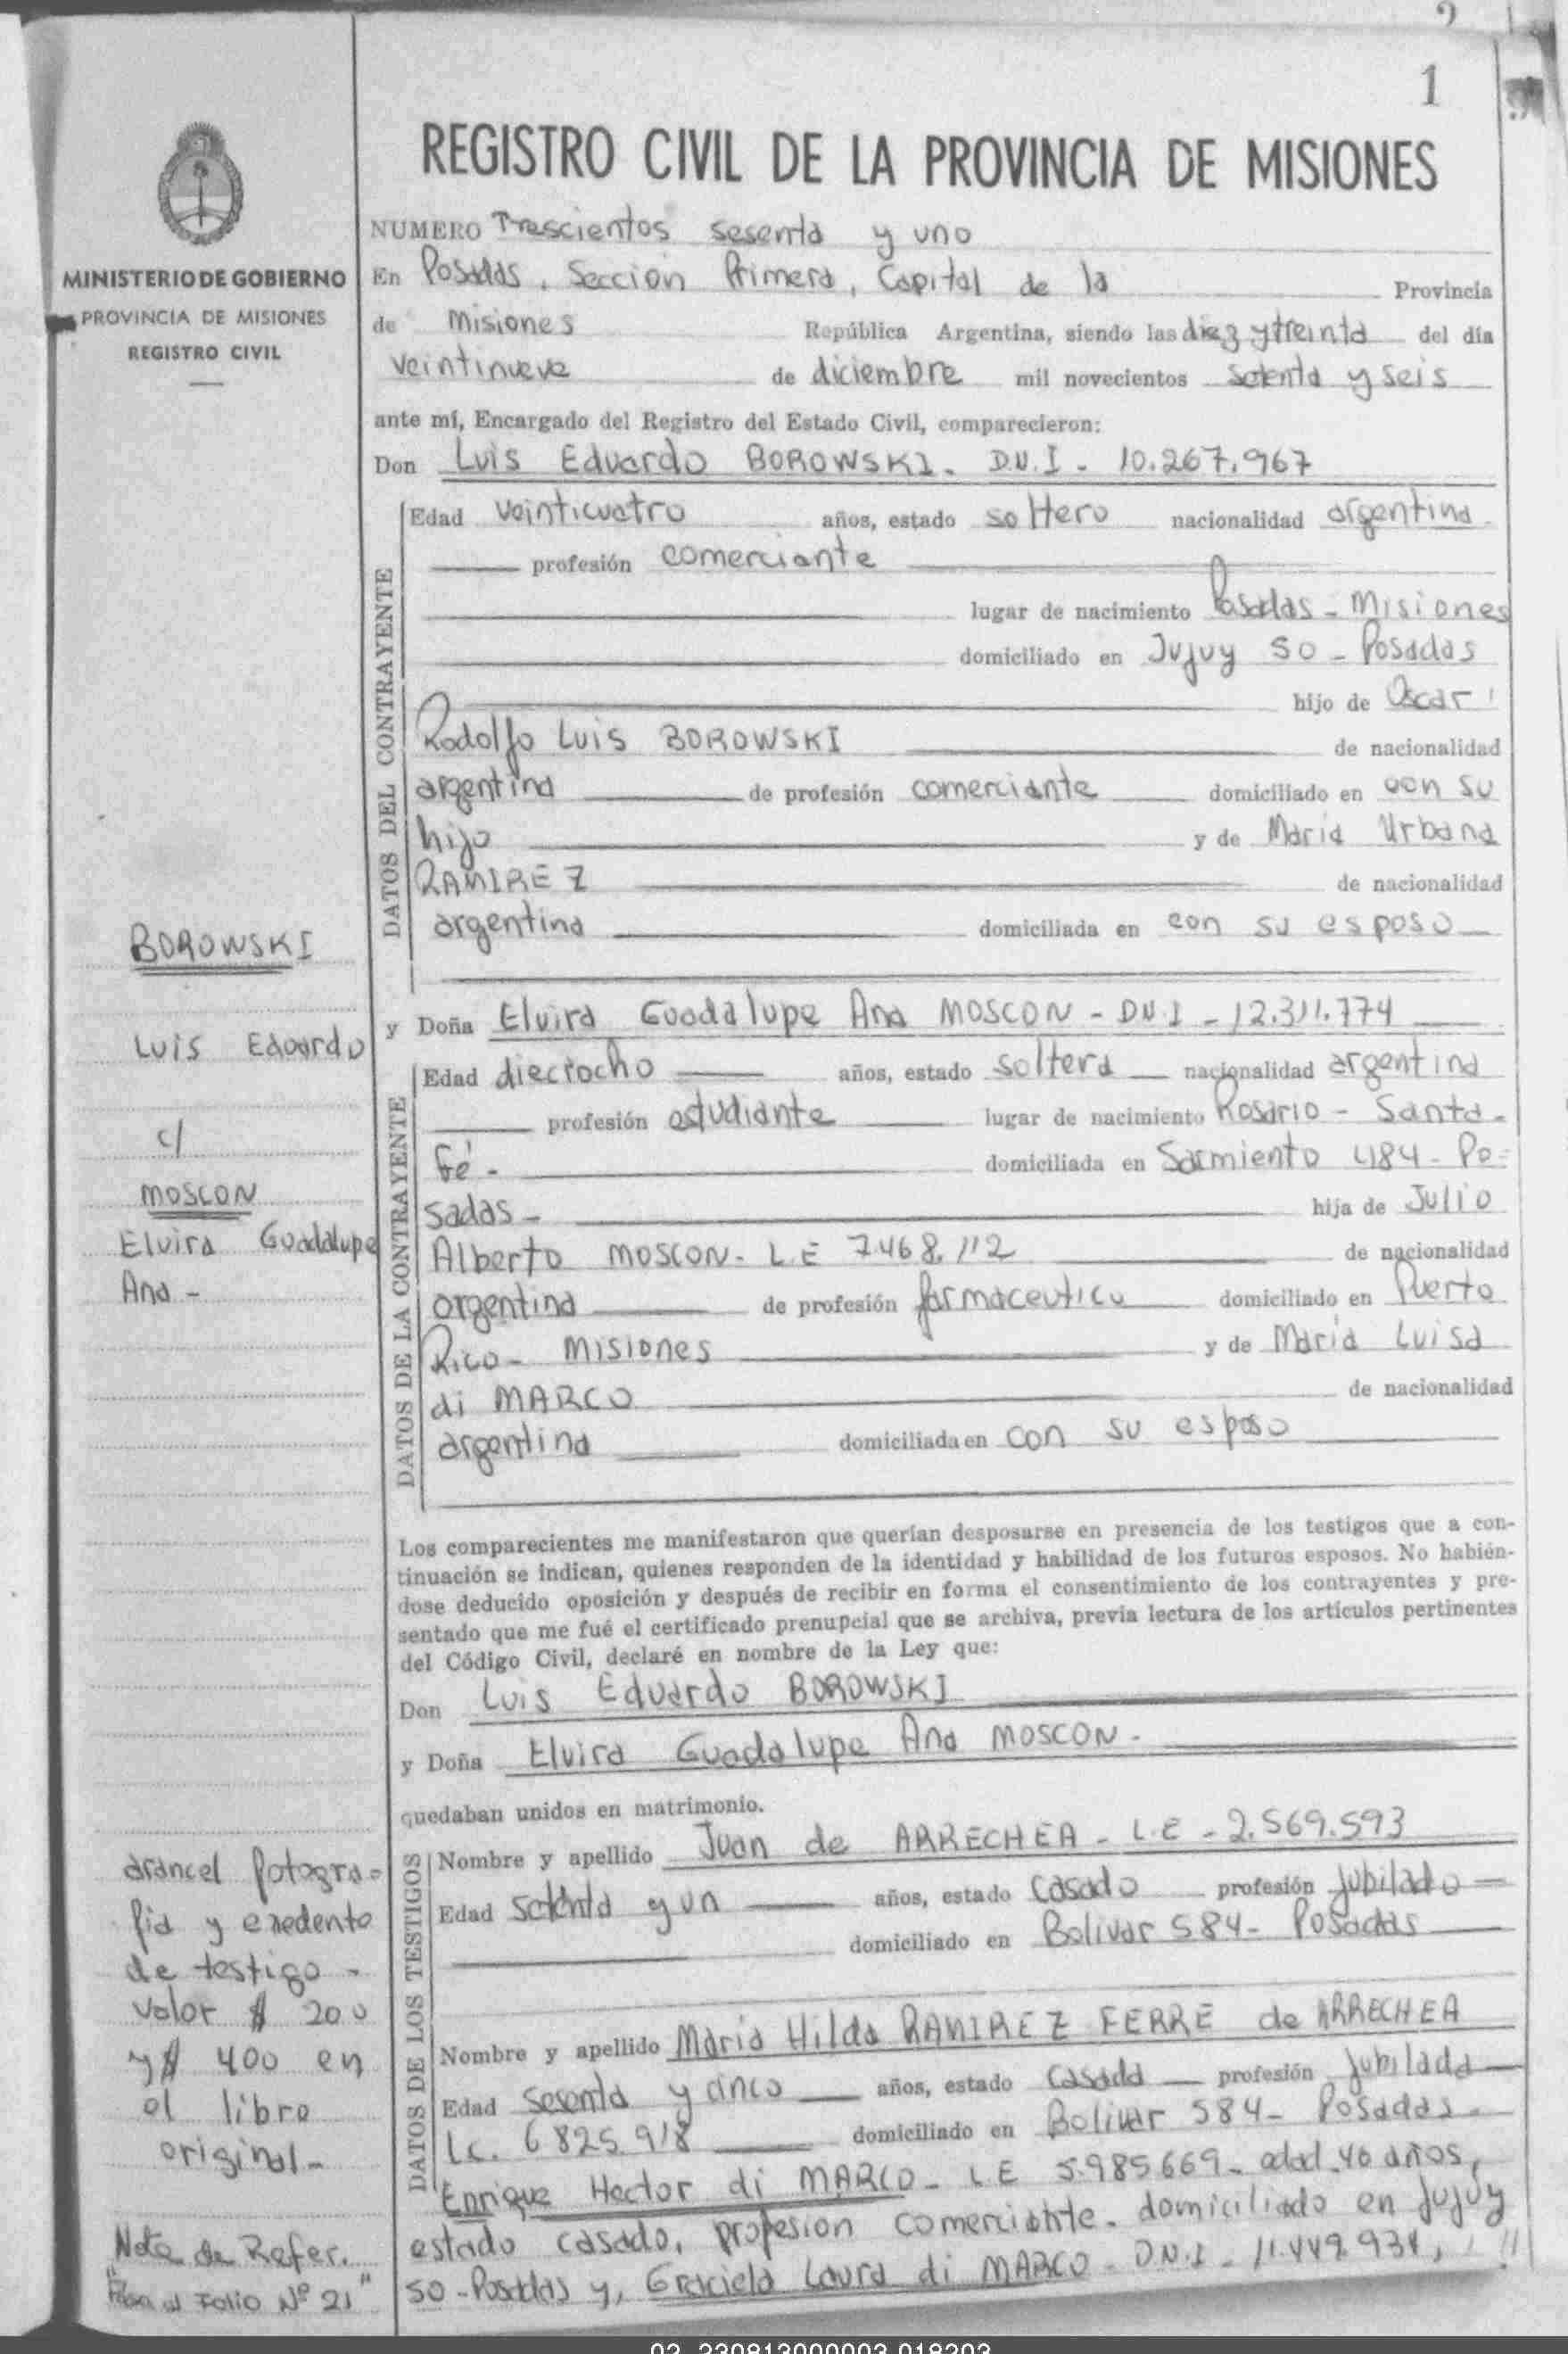 1
REGISTRO CIVIL DE LA PROVINCIA DE MISIONES
MINISTERIO DE GOBIERNO
PROVINCIA DE MISIONES
REGISTRO CIVIL
NUMERO Trescientos sesenta y uno
En Posadas, Sección Primera, Capital de la Provincia
de Misiones República Argentina, siendo las diez y treinta del día
veintinueve de diciembre mil novecientos setenta y seis
ante mí, Encargado del Registro del Estado Civil, comparecieron:
Don Luis Eduardo BOROWSKI. D.N.I - 10.267.967
DATOS DEL CONTRAYENTE
Edad veinticuatro años, estado soltero nacionalidad argentina
profesión comerciante
lugar de nacimiento Posadas - Misiones
domiciliado en Jujuy 50 - Posadas
hijo de Oscar
Rodolfo Luis BOROWSKI de nacionalidad
argentina de profesión comerciante domiciliado en con su
hijo y de Maria Urbana
RAMIREZ de nacionalidad
argentina domiciliada en con su esposo
BOROWSKI
Luis Eduardo
c/
MOSCON
Elvira Guadalupe
Ana -
y Doña Elvira Guadalupe Ana MOSCON - DN.I - 12.311.774
DATOS DE LA CONTRAYENTE
Edad dieciocho años, estado soltera nacionalidad argentina
profesión estudiante lugar de nacimiento Rosario - Santa -
Fé - domiciliada en Sarmiento 484 - Po-
sadas - hija de Julio
Alberto MOSCON - L.E 7.468.112 de nacionalidad
argentina de profesión farmaceutico domiciliado en Puerto
Rico - Misiones y de Maria Luisa
di MARCO de nacionalidad
argentina domiciliada en con su esposo
Los comparecientes me manifestaron que querían desposarse en presencia de los testigos que a con-
tinuación se indican, quienes responden de la identidad y habilidad de los futuros esposos. No habién-
dose deducido oposición y después de recibir en forma el consentimiento de los contrayentes y pre-
sentado que me fué el certificado prenupcial que se archiva, previa lectura de los artículos pertinentes
del Código Civil, declaré en nombre de la Ley que:
Don Luis Eduardo BOROWSKI
y Doña Elvira Guadalupe Ana MOSCON -
quedaban unidos en matrimonio.
DATOS DE LOS TESTIGOS
Nombre y apellido Juan de ARRECHEA - L.E - 2.569.593
Edad setenta y un años, estado casado profesión jubilado
domiciliado en Bolivar 584 - Posadas
Nombre y apellido Maria Hilda RAMIREZ FERRE de ARRECHEA
Edad sesenta y cinco años, estado casada profesión jubilada
Lc. 6825.918 domiciliado en Bolivar 584 - Posadas -
Enrique Hector di MARCO - L.E 5.985.669 - edad 40 años,
estado casado, profesion comerciante - domiciliado en Jujuy
50 - Posadas y, Graciela Laura di MARCO - D.N.I - 11.449.934,
arancel fotogra-
fia y exedente
de testigo -
valor $ 200
y $ 400 en
el libro
original -
Nota de Refer.
Folio Nº 21"
02_230813000003_018203